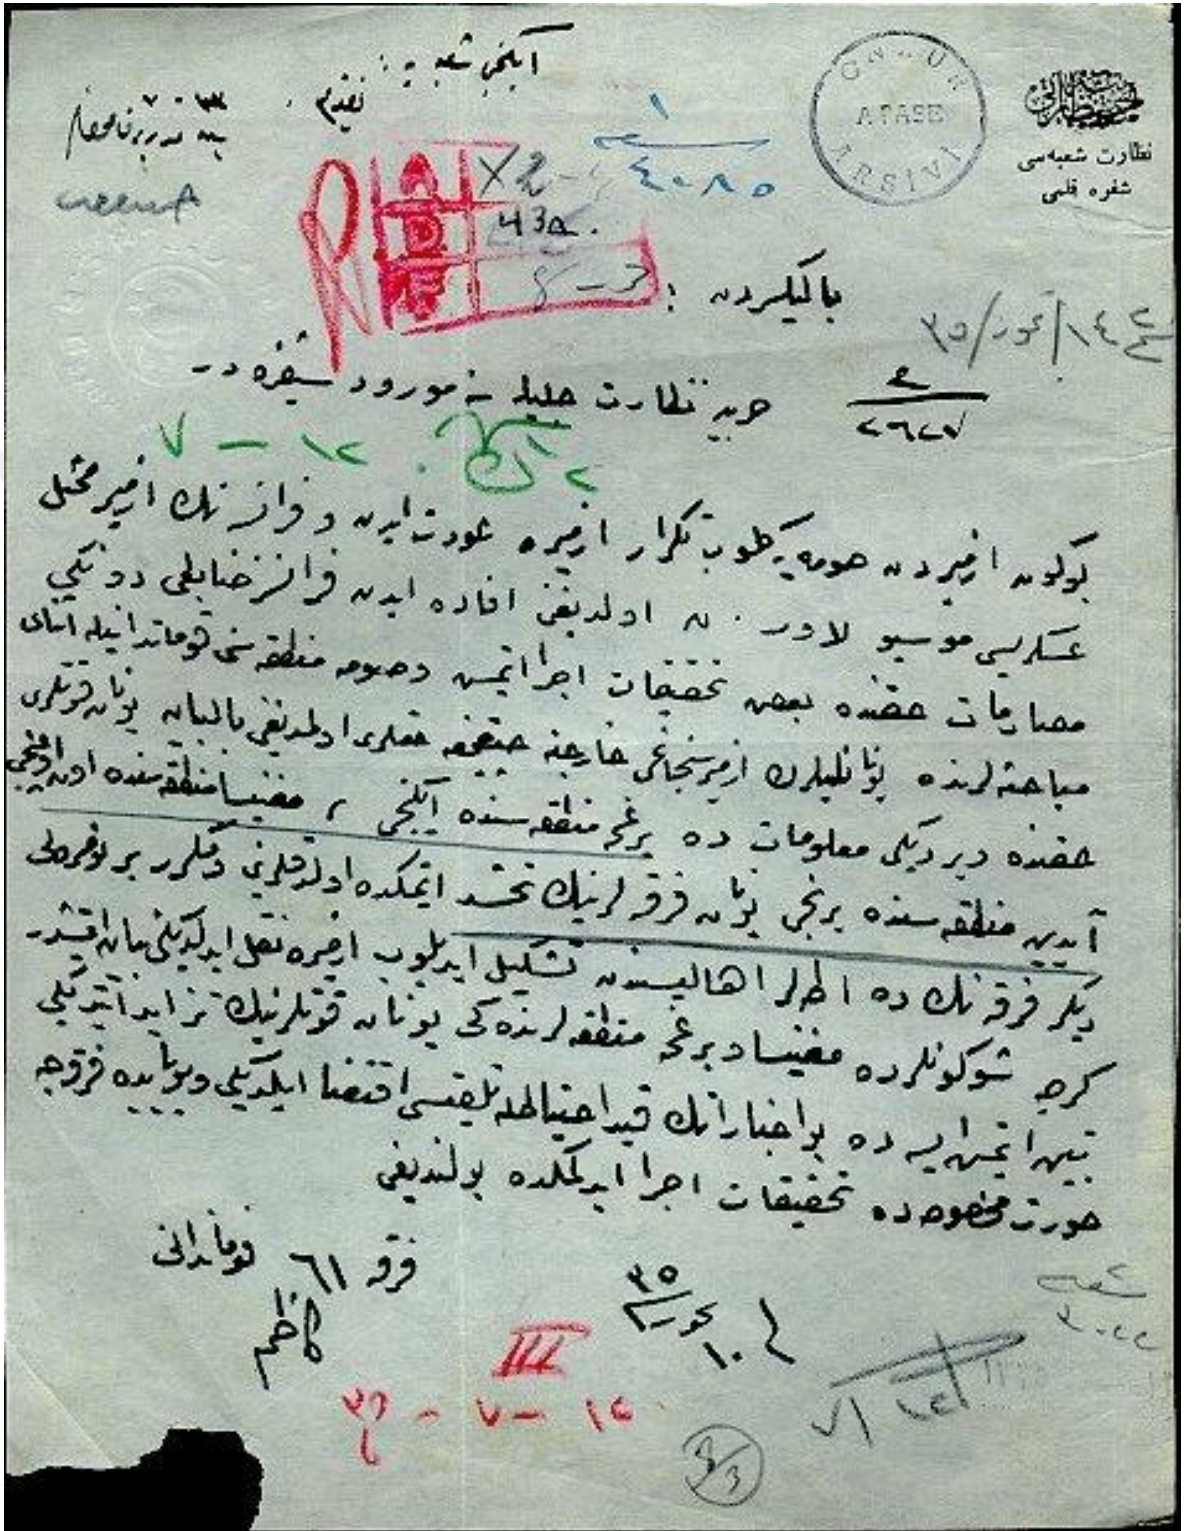 ایكنجی شعبه یه :
تقدیم
GNKUR
ATASE
ARŞİVİ
نظارت شعبه‌سی
شفره قلمی
١
٤٠٨٥
X2
43a.
بالیكسردن :
١٤/تموز/٣٥
٢٦٢٧
حربیه نظارت جلیله سنه مورود شیفره در
١٢ - ٧
بوكون ازمیردن صومه‌یه كلوب تكرار ازمیره عودت ایدن و فرانسه‌نك ازمیر ممثل
عسكریسی موسیو لاور . ن اولدیغنی افاده ایدن فرانسز ضابطی دونكی
مصادمات حقنده بعض تحقیقات اجرا ایتمش و صومه منطقه‌سی قوماندانیله اثنای
مباحثه‌لرنده یونانلیلرك ازمیر سنجاغی خارجنه چیقمغه حقلری اولمدیغنی بالبیان یونان قوتلری
حقنده ویردیكی معلومات ده برغمه منطقه سنده ایكنجی ، مغنیسا منطقه سنده اون اوچنجی
آیدین منطقه سنده برنجی یونان فرقه لرینك تحشد ایتمكده اولدقلرینی و مكرر بر نومرولی
دیكر فرقه نك ده اطه‌لر اهالیسندن تشكیل ایدیلوب ازمیره نقل ایدلدیكنی بیان ایتمشدر
كرچه شو كونلرده مغنیسا و برغمه منطقه لرنده‌كی یونان قوتلرینك تزاید ایتدیكی
تبین ایتمش ایسه ده بو اخباراتك قید احتیاطله تلقیسی اقتضا ایلدیكی و بوبابده فرقه‌جه
صورت مخصوصه ده تحقیقات اجرا ایدلمكده بولندیغی
فرقه ٦١ قوماندانی
كاظم
١٠ تموز ٣٥
III
١٢ - ٧ - ٣٥
شعبه
٣٠٢٢
١٢/٧
3/3